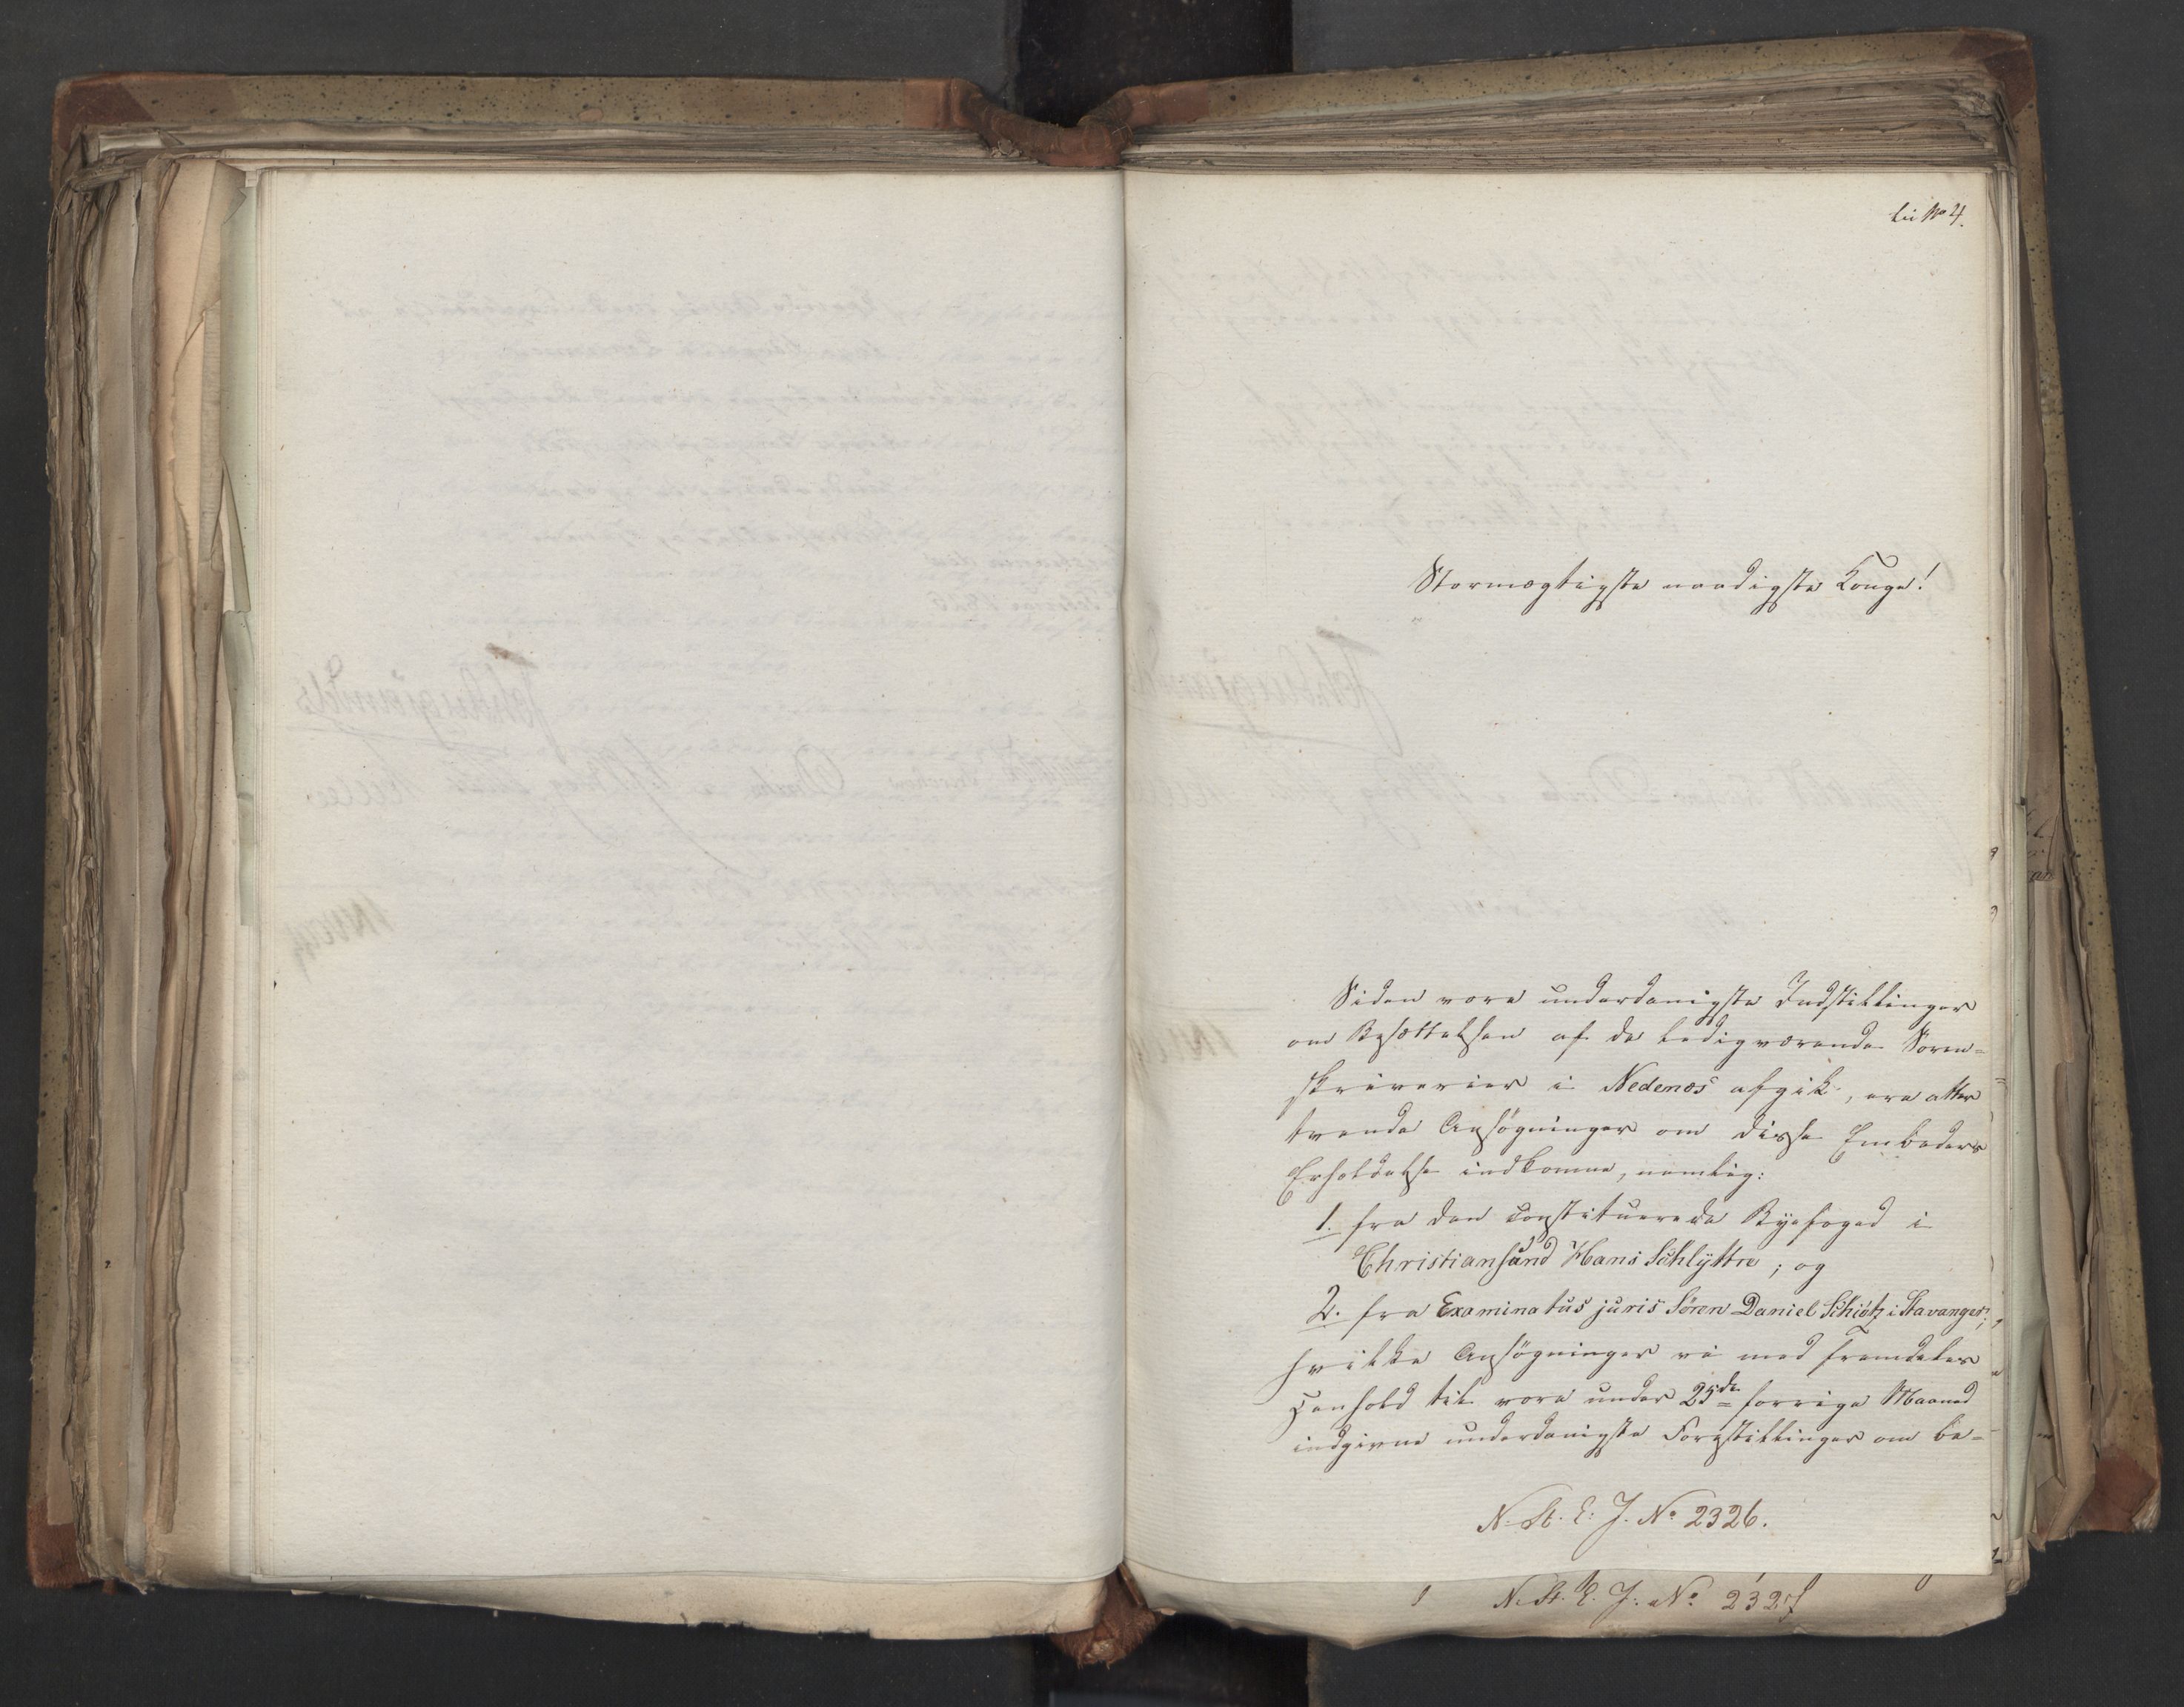 Lit No 4.
Stormægtigste naadigste Konge!
Siden vore underdanigste Indstillinger
om Besættelsen af de ledigværende Soren-
skriverier i Nedenæs afgik, ere atter
tvende Ansøgninger om disse Embeders
Erholdelse indkomne, nemlig:
1. fra den constituerede Byefoged i
Christiansund Hans Schlytter; og
2. fra Examinatus juris Søren Daniel Schiøtz i Stavanger;
hvilke Ansøgninger vi med fremdeles
Henhold til vore under 25de forrige Maaned
indgivne underdanigste Forestillinger om be-
N. St. E. J. No 2326.
N. St. E. J. No 2327